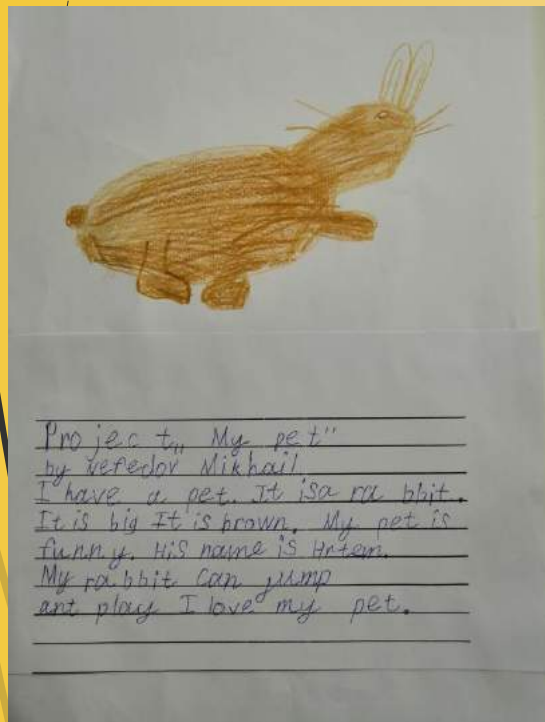 Project „ My pet"
by Nefedov Mikhail
I have a pet. It isa ra bbit.
It is big It is brown. My pet is
funny. His name is Artem.
My rabbit can jump
ant play I love my pet.